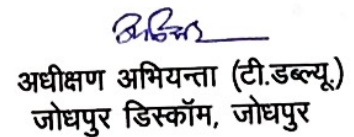 अधीक्षण अभियन्ता (टी.डब्ल्यू.)
जोधपुर डिस्कॉम, जोधपुर